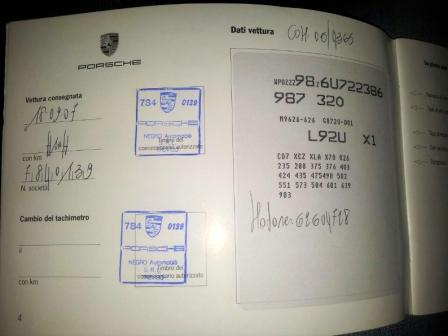 Dati vettura
PORSCHE
Vettura consegnata
18 09 07
con km
N. società
784 0139
PORSCHE
NEGRO Automobili
Timbro del
concessionario autorizzato
Cambio del tachimetro
il
con km
784 0139
PORSCHE
NEGRO Automobili
S. R. L. Timbro del
concessionario autorizzato
4
WP0ZZZ98Z6U722386
987 320
M9626-626 G8720-001
L92U X1
C07 XCZ XLA X70 026
235 208 375 376 403
424 435 475 498 502
551 573 504 601 639
983
Motore: 62604728